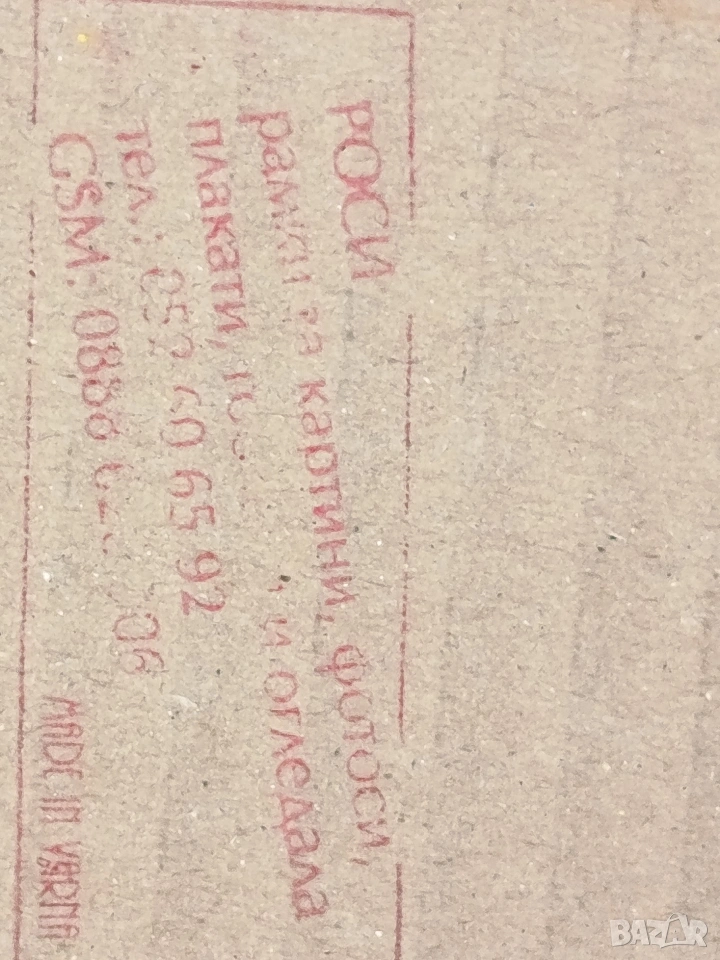 РОСИ
рамки за картини, фотоси,
плакати, и огледала
тел.: 052 60 65 92
GSM: 0888
MADE IN VARNA
BAZAR